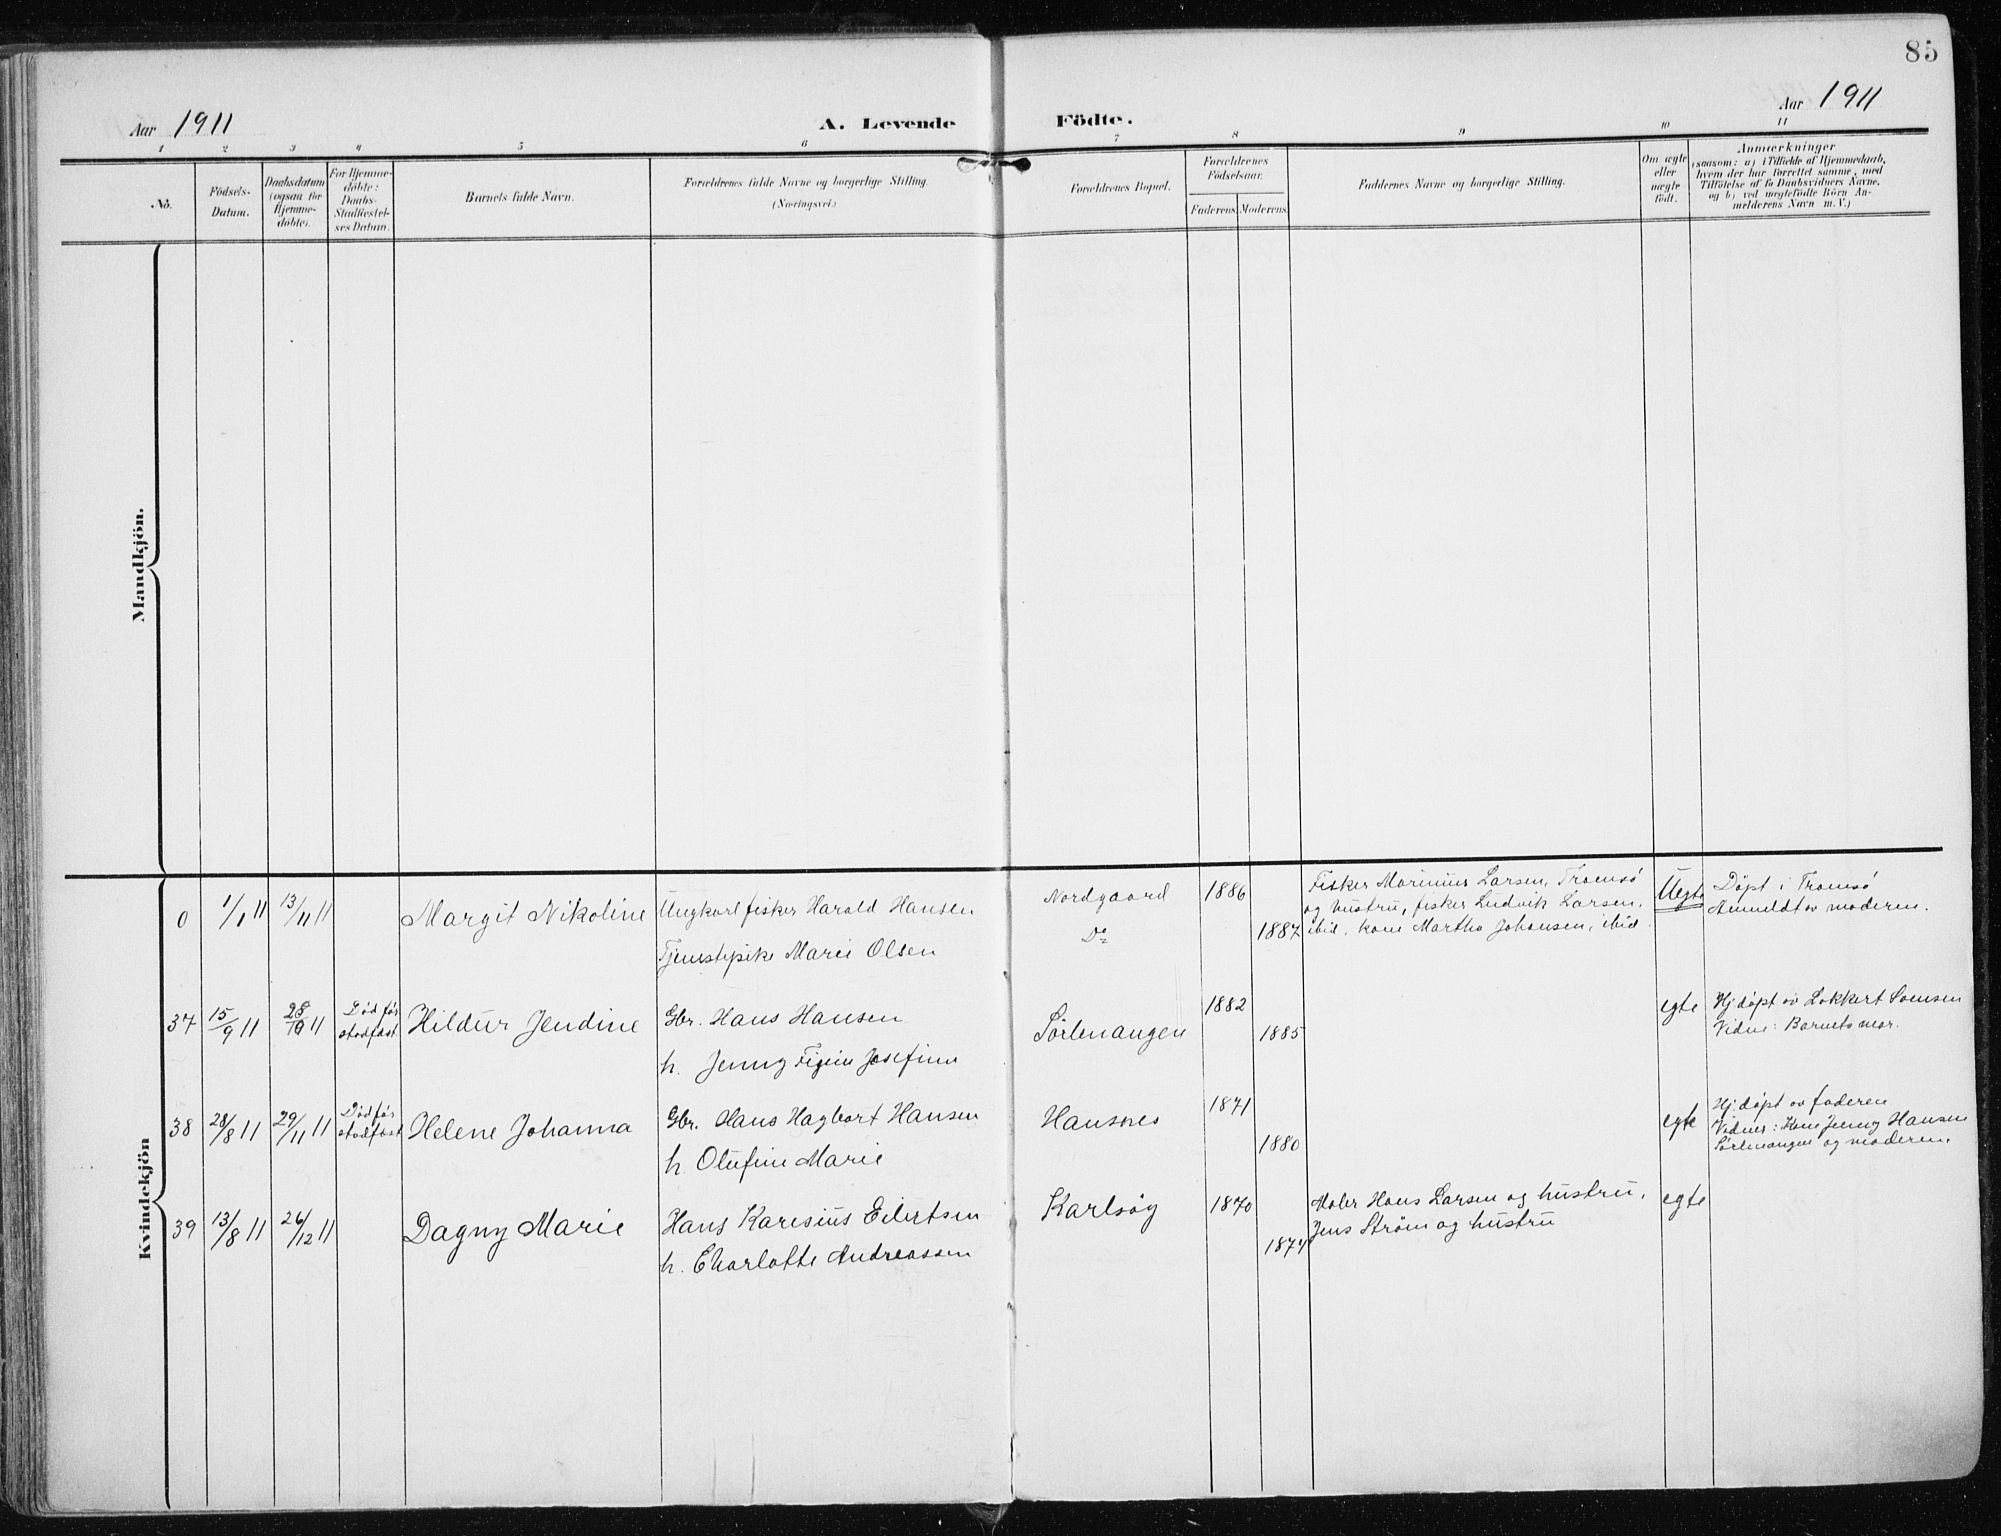 85
Aar 1911
A. Levende Födte.
Aar 1911
1 2 3 4 5 6 7 8 9 10 11
No.
Födsels-
Datum.
Daabsdatum
(ogsaa for
Hjemme-
döbte).
For Hjemme-
döbte:
Daabs-
Stadfæstel-
ses Datum.
Barnets fulde Navn.
Forældrenes fulde Navne og borgerlige Stilling.
(Næringsvei.)
Forældrenes Bopæl.
Forældrenes
Födselsaar.
Faderens. Moderens.
Faddernes Navne og borgerlige Stilling.
Om ægte
eller
uægte
födt.
Anmærkninger
(saasom: a) i Tilfælde af Hjemmedaab,
hvem der har forrettet samme, med
Tilföielse af to Daabsvidners Navne,
og b) ved uægtefödte Börn An-
melderens Navn m. V.)
Mandkjön.
Kvindekjön
0 1/1 11 13/11 11 Margit Nikoline
Ungkarl fisker Harald Hansen
Tjenestepike Marie Olsen
Nordgaard
Do
1886
1887
Fisker Marinius Larsen, Tromsø
og hustru, fisker Ludvik Larsen,
ibid, kone Martha Johansen, ibid.
Uegte
Døpt i Tromsø
Anmeldt av moderen.
37 15/9 11 28/10 11
Død før
stadfæst
Hildur Jendine
Gbr. Hans Hansen
h. Jenny Josefine
Sørlenangen
1882
1885
egte
Hj.døpt av Lokkert Soensen
Vidne: Barnets mor.
38 28/8 11 29/11 11
Død før
stadfæst
Helene Johanna
Gbr. Hans Hagbart Hansen
h. Olufine Marie
Hansnes
1871
1880
egte
Hj.døpt av faderen
Vidner: Kone Jenny Hansen
Sørlenangen og moderen.
39 13/8 11 26/12 11 Dagny Marie
Hans Karesius Eilertsen
h. Charlotte Andreassen
Karlsøy
1870
1874
Maler Hans Larsen og hustru,
Jens Strøm og hustru
egte